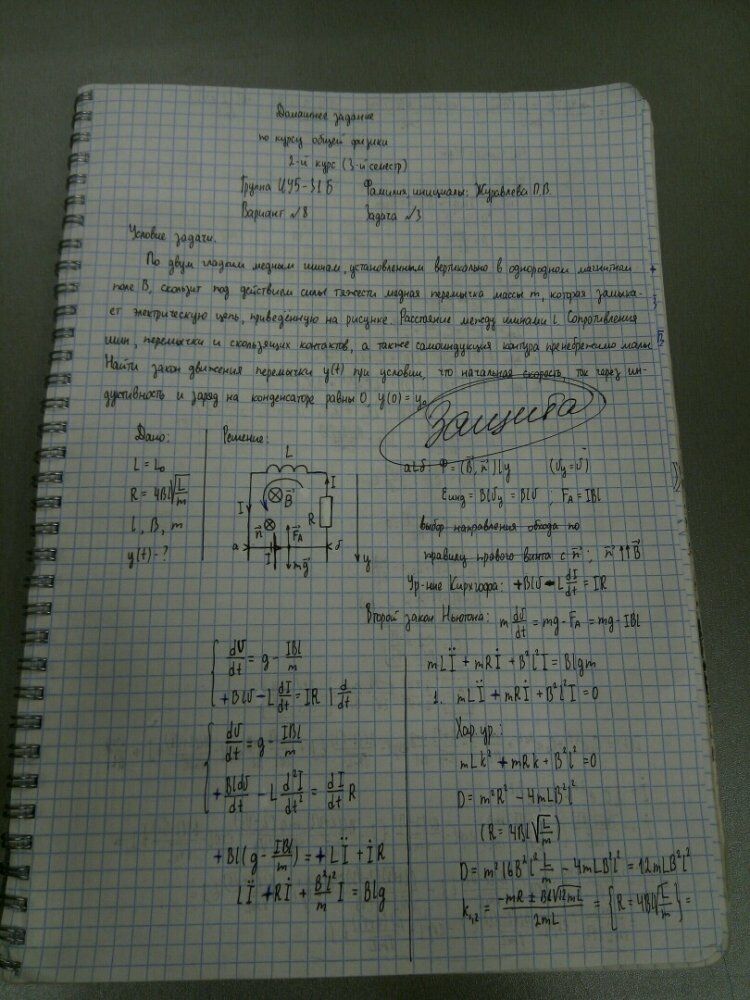 Домашнее задание
по курсу общей физики
2-й курс (3-й семестр)
Группа ИУ5-31Б Фамилия, инициалы: Журавлева П.В.
Вариант №8 Задача №3
Условие задачи.
По двум гладким медным шинам, установленным вертикально в однородном магнитном
поле B, скользит под действием силы тяжести медная перемычка массы m, которая замыка-
ет электрическую цепь, приведённую на рисунке. Расстояние между шинами l. Сопротивления
шин, перемычки и скользящих контактов, а также самоиндукция контура пренебрежимо малы.
Найти закон движения перемычки y(t) при условии, что начальная скорость, ток через ин-
дуктивность и заряд на конденсаторе равны 0, y(0) = y₀
Защита
Дано:
L = L₀
R = 4Bl√(L/m)
l, B, m
y(t) - ?
Решение:
L
I
B⃗
I
R
n⃗
F⃗A
а
I
б
mg⃗
y
аLб Φ = (B⃗, n⃗) l y (υy = υ)
εинд = Blυy = Blυ ; FA = IBl
выбор направления обхода по
правилу правого винта с n⃗ ; n⃗ ↑↑ B⃗
Ур-ние Кирхгофа: +Blυ - L dI/dt = IR
Второй закон Ньютона: m dυ/dt = mg - FA = mg - IBl
{ dυ/dt = g - IBl/m
+Blυ - L dI/dt = IR | d/dt
{ dυ/dt = g - IBl/m
+ Bldυ/dt - L d²I/dt² = dI/dt R
+Bl(g - IBl/m) = +LÏ + İR
LÏ + Rİ + B²l²/m I = Blg
mLÏ + mRİ + B²l²I = Blgm
1. mLÏ + mRİ + B²l²I = 0
Хар. ур.:
mLk² + mRk + B²l² = 0
D = m²R² - 4mLB²l²
(R = 4Bl√(L/m))
D = m²16B²l² L/m - 4mLB²l² = 12mLB²l²
k₁,₂ = (-mR ± Bl√(12mL))/2mL = {R = 4Bl√(L/m)} =